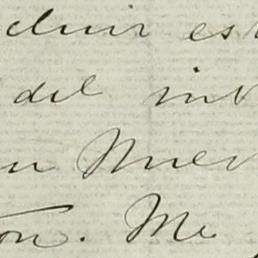 cluir est
del int
en Nuev
ton. Me